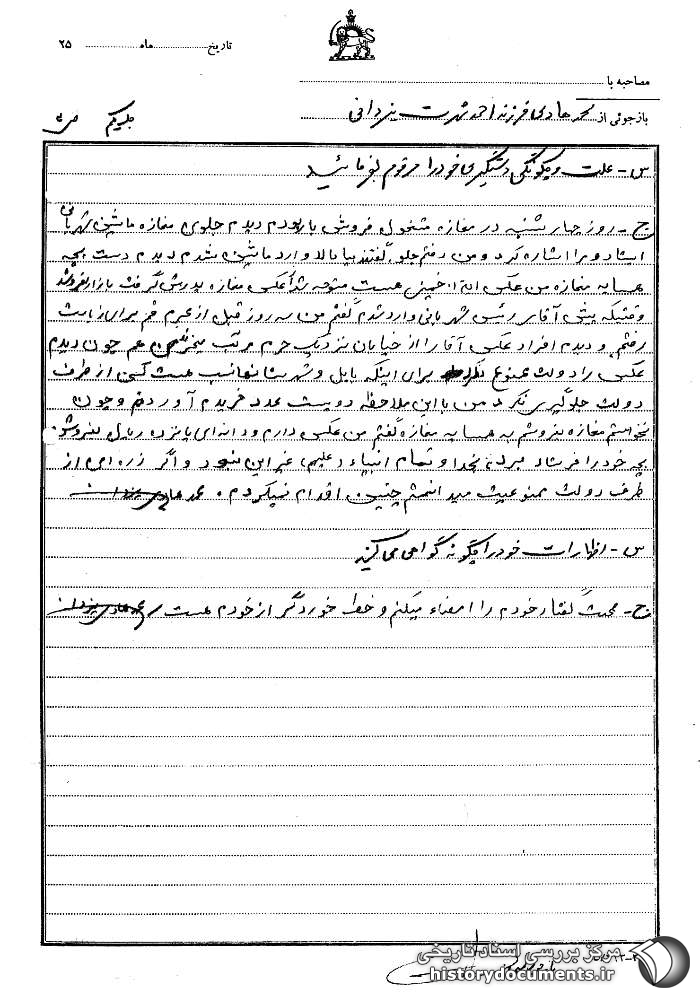 تاریخ ماه ۲۵
مصاحبه با
بازجوئی از محمد هادی فرزند احمد شهرت یزدانی جلسه یکم
س - علت و چگونگی دستگیری خود را مرقوم بفرمائید
ج - روز چهارشنبه در مغازه مشغول فروش بار بودم دیدم جلوی مغازه ماشین شهربانی
ایستاد و مرا اشاره کرد و من رفتم جلو گفتند بیا بالا وارد ماشین شدم دیدم دست بچه
همسایه مغازه من عکس خمینی هست متوجه شد عکس مغازه پدرش گرفت بازار بفروشد
وقتیکه پیش آقای رئیس شهربانی وارد شدم گفتم من سه روز قبل از محرم قم برای زیارت
رفتم و دیدم افراد عکس آقا را از خیابان نزدیک حرم مرتب میخرند من هم چون دیدم
عکس را دولت ممنوع نکرده برای اینکه بابل و شهرستانها هست کسی از طرف
دولت جلوگیری نکرد من با این ملاحظه دویست عدد خریدم آوردم و چون
نخواستم مغازه بفروشم به همسایه مغازه گفتم من عکس دارم و دانه‌ای پانزده ریال بفروش
بچه خود را فرستاد بخدا و تمام انبیاء غیر این نبود و اگر ذره‌ای از
طرف دولت ممنوعیت میدانستم چنین اقدام نمیکردم. محمد هادی یزدانی
س - اظهارات خود را چگونه گواهی می‌کنید
ج - صحت گفتار خودم را امضاء میکنم و خط خوردگی از خودم هست محمد هادی یزدانی
مرکز بررسی اسناد تاریخی
historydocuments.ir